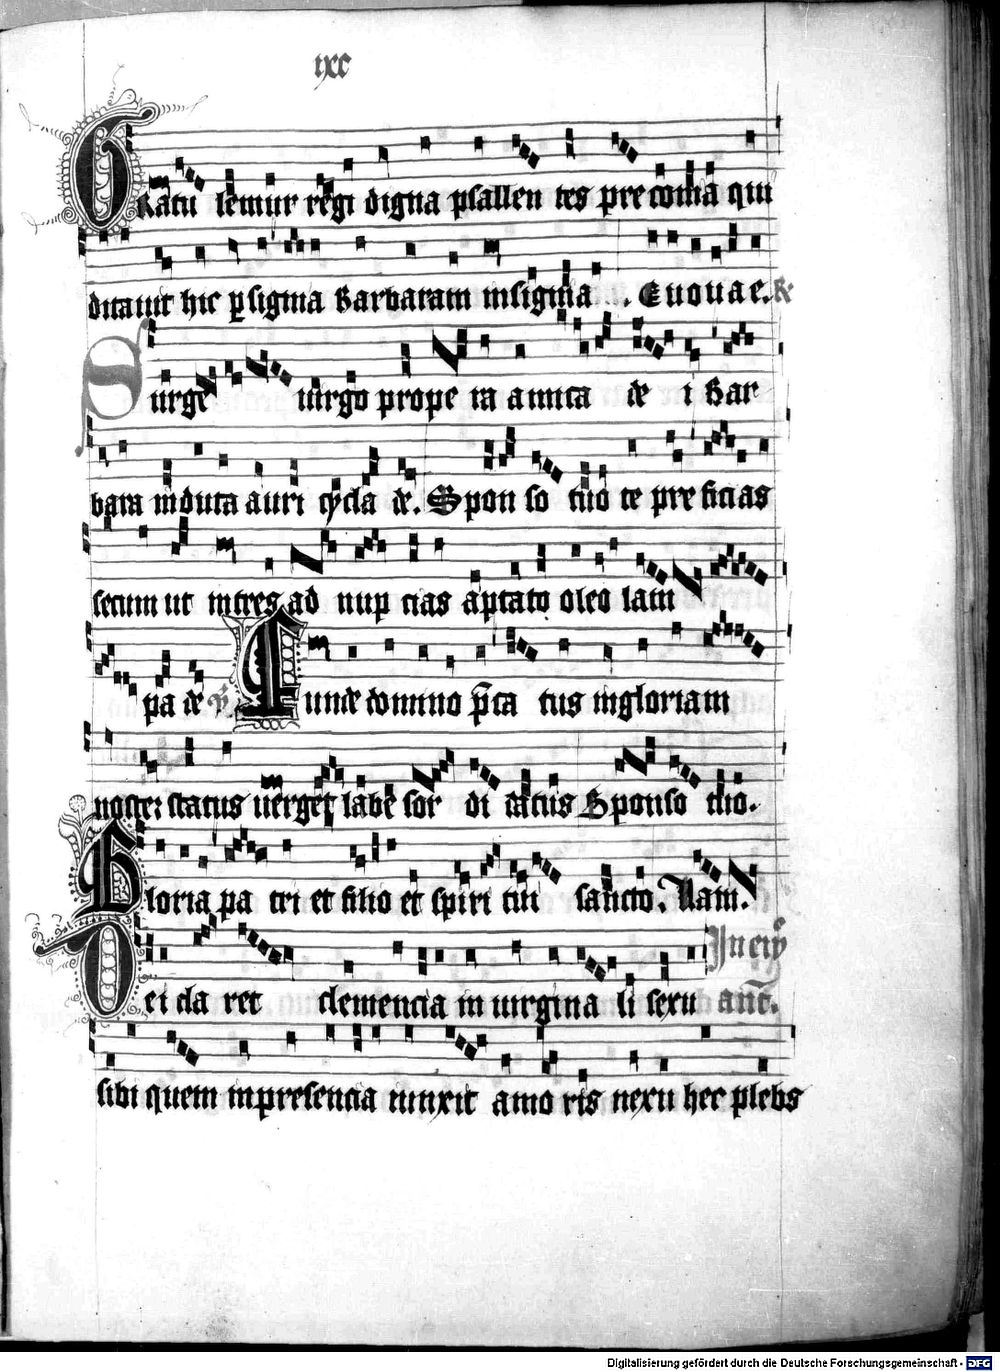 ixc
Gratu lemur regi digna psallen tes preconia qui
ditauit hic p signa Barbaram insignia. Euouae. R
Surge uirgo prope ra amica de i Bar
bara induta auri cycla de. Spon so tuo te pre ficias
secum ut intres ad nup cias aptato oleo lam
pa de V Tunde domino pca tus ingloriam
noster status uerget labe sor di datus Sponso tuo.
Gloria pa tri et filio et spiri tui sancto. Nam.
Dei da ret clemencia in uirgina li sexu Jn eug ant.
sibi quem inpresencia iunxit amo ris nexu hec plebs
Digitalisierung gefördert durch die Deutsche Forschungsgemeinschaft - DFG